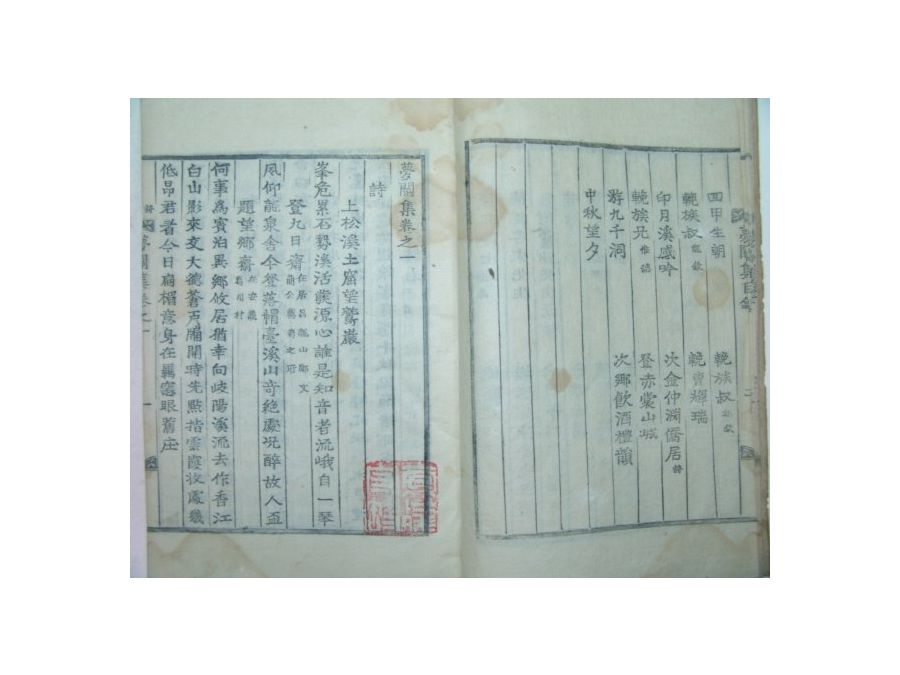 四甲生朝
輓族叔
輓族叔
輓曺耀瑞
印月溪感吟
次金仲淵僑居
輓族兄
登赤裳山城
游九千洞
次鄉飮酒禮韻
中秋望夕
夢關集卷之一
詩
上松溪土窟望鷲巖
峯危累石勢溪活發源心誰是知音者流峨自一琴
登九日齋
風仰龍泉舍今登落帽臺溪山奇絶處況醉故人盃
題望鄉齋
何事爲賓泊異鄉攸居猶幸向岐陽溪流去作香江
白山影來交大德蒼戶牖開時先點指雲霞收處幾
低昂君看今日扁楣意身在羈窩眼舊庄